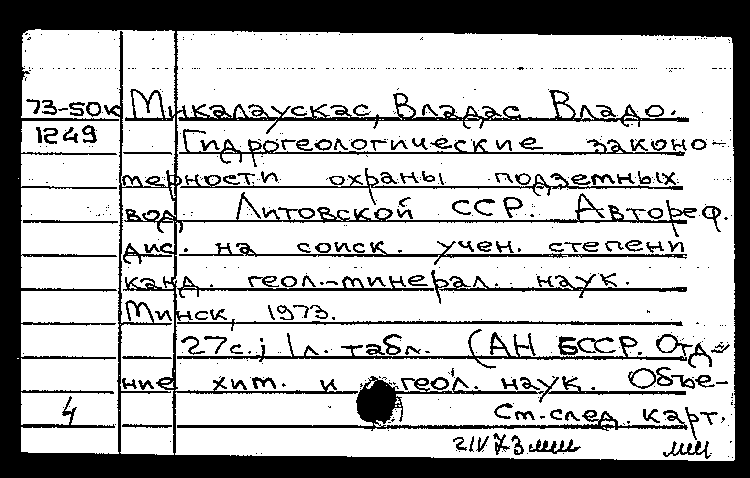 73-50к Микалаускас, Владас Владо.
1249 Гидрогеологические законо-
мерности охраны подземных
вод Литовской ССР. Автореф.
дис. на соиск. учен. степени
канд. геол.-минерал. наук.
Минск, 1973.
27с.; 1л. табл. (АН БССР. Отд-
ние хим. и геол. наук. Объе-
4 См. след. карт.